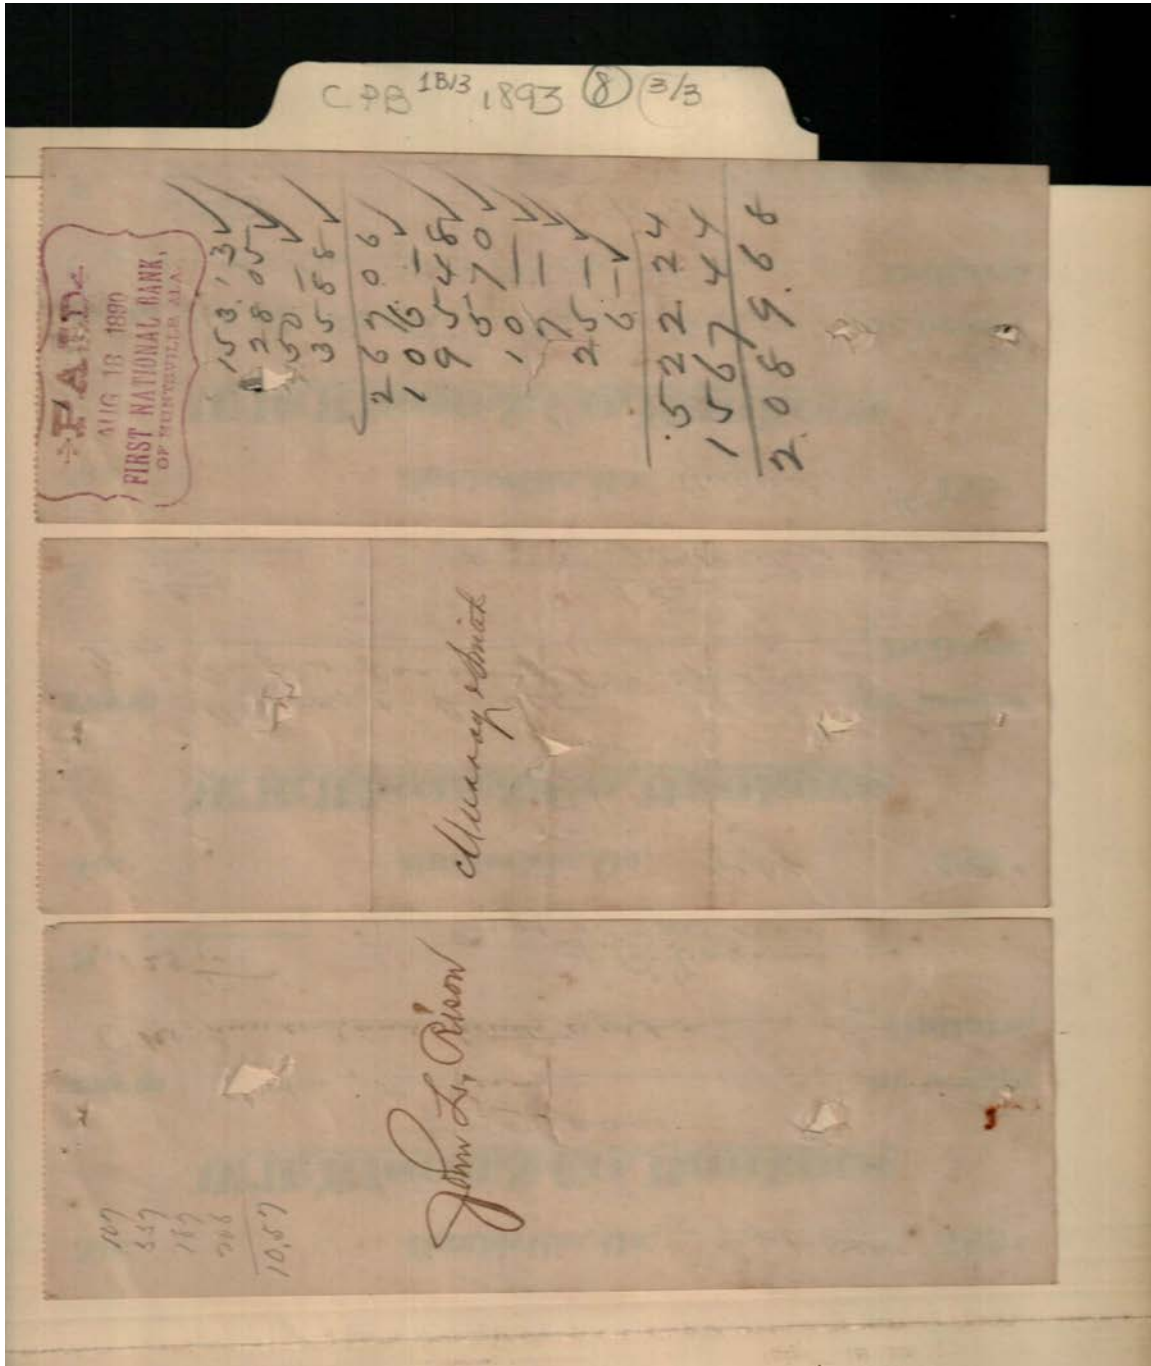 CPB 1B/3 1893 (8) (3/3)
PAID
AUG 18 1890
FIRST NATIONAL BANK,
OF HUNTSVILLE ALA.
153.13
28.05
50 —
35 88
267 06
106 —
95 48
5 70
10 —
7 —
25 —
6 —
522 24
1567 44
2089.68
Murray & Smith
John L, Rison
107
557
187
206
10,57